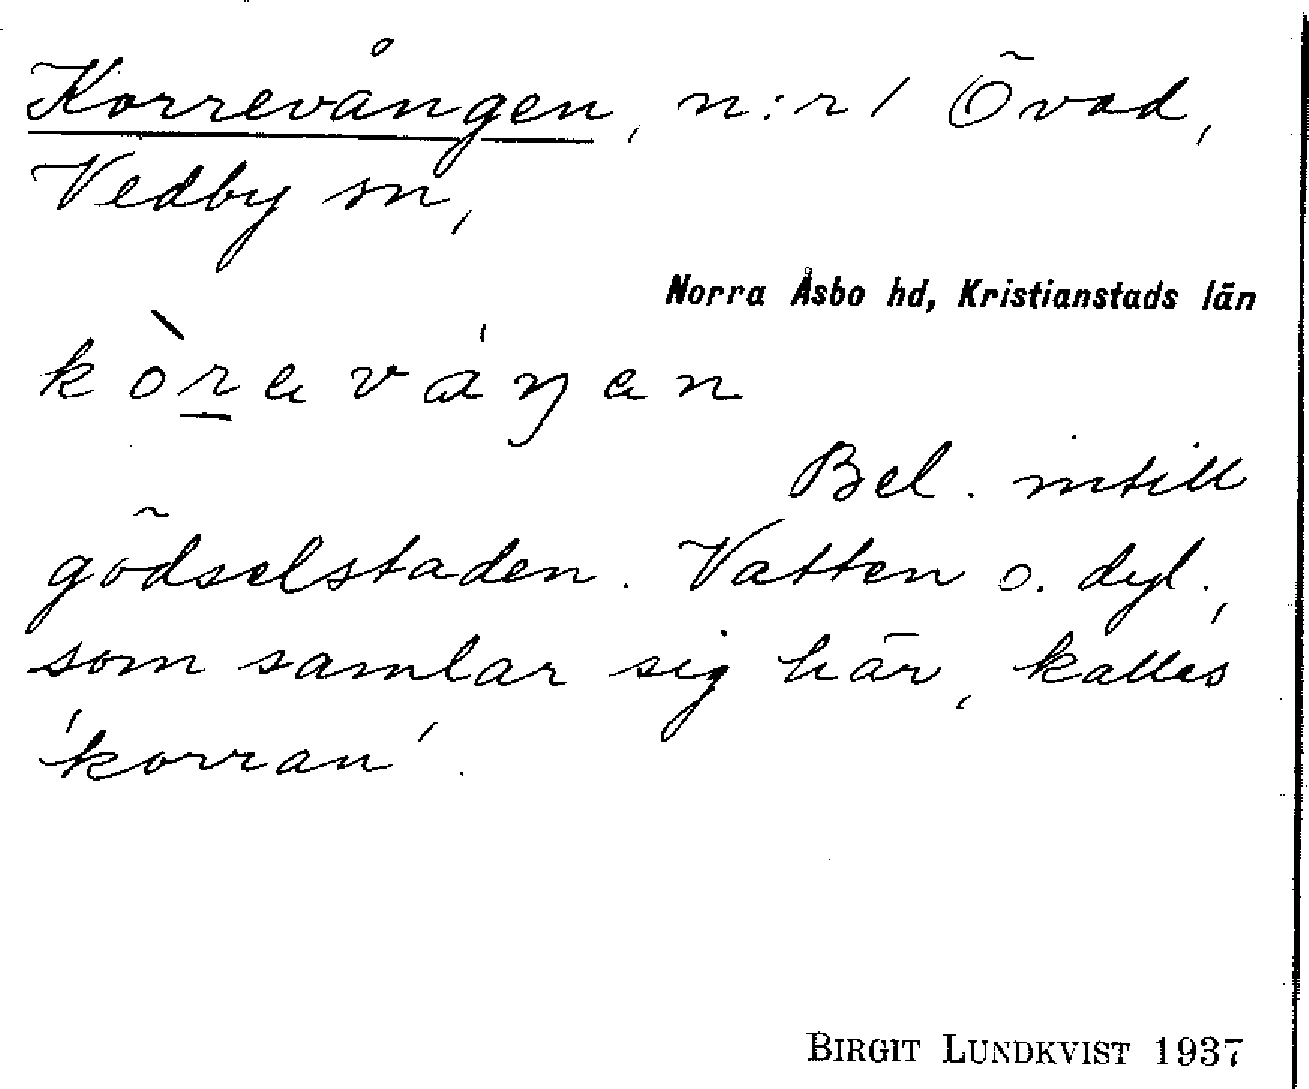 Korrevången, n:r 1 Övad,
Vedby sn,
Norra Åsbo hd, Kristianstads län
kòr̲aváŋan
Bel. intill
gödselstaden. Vatten o. dyl.,
som samlar sig här, kallas
'korran'.
BIRGIT LUNDKVIST 1937